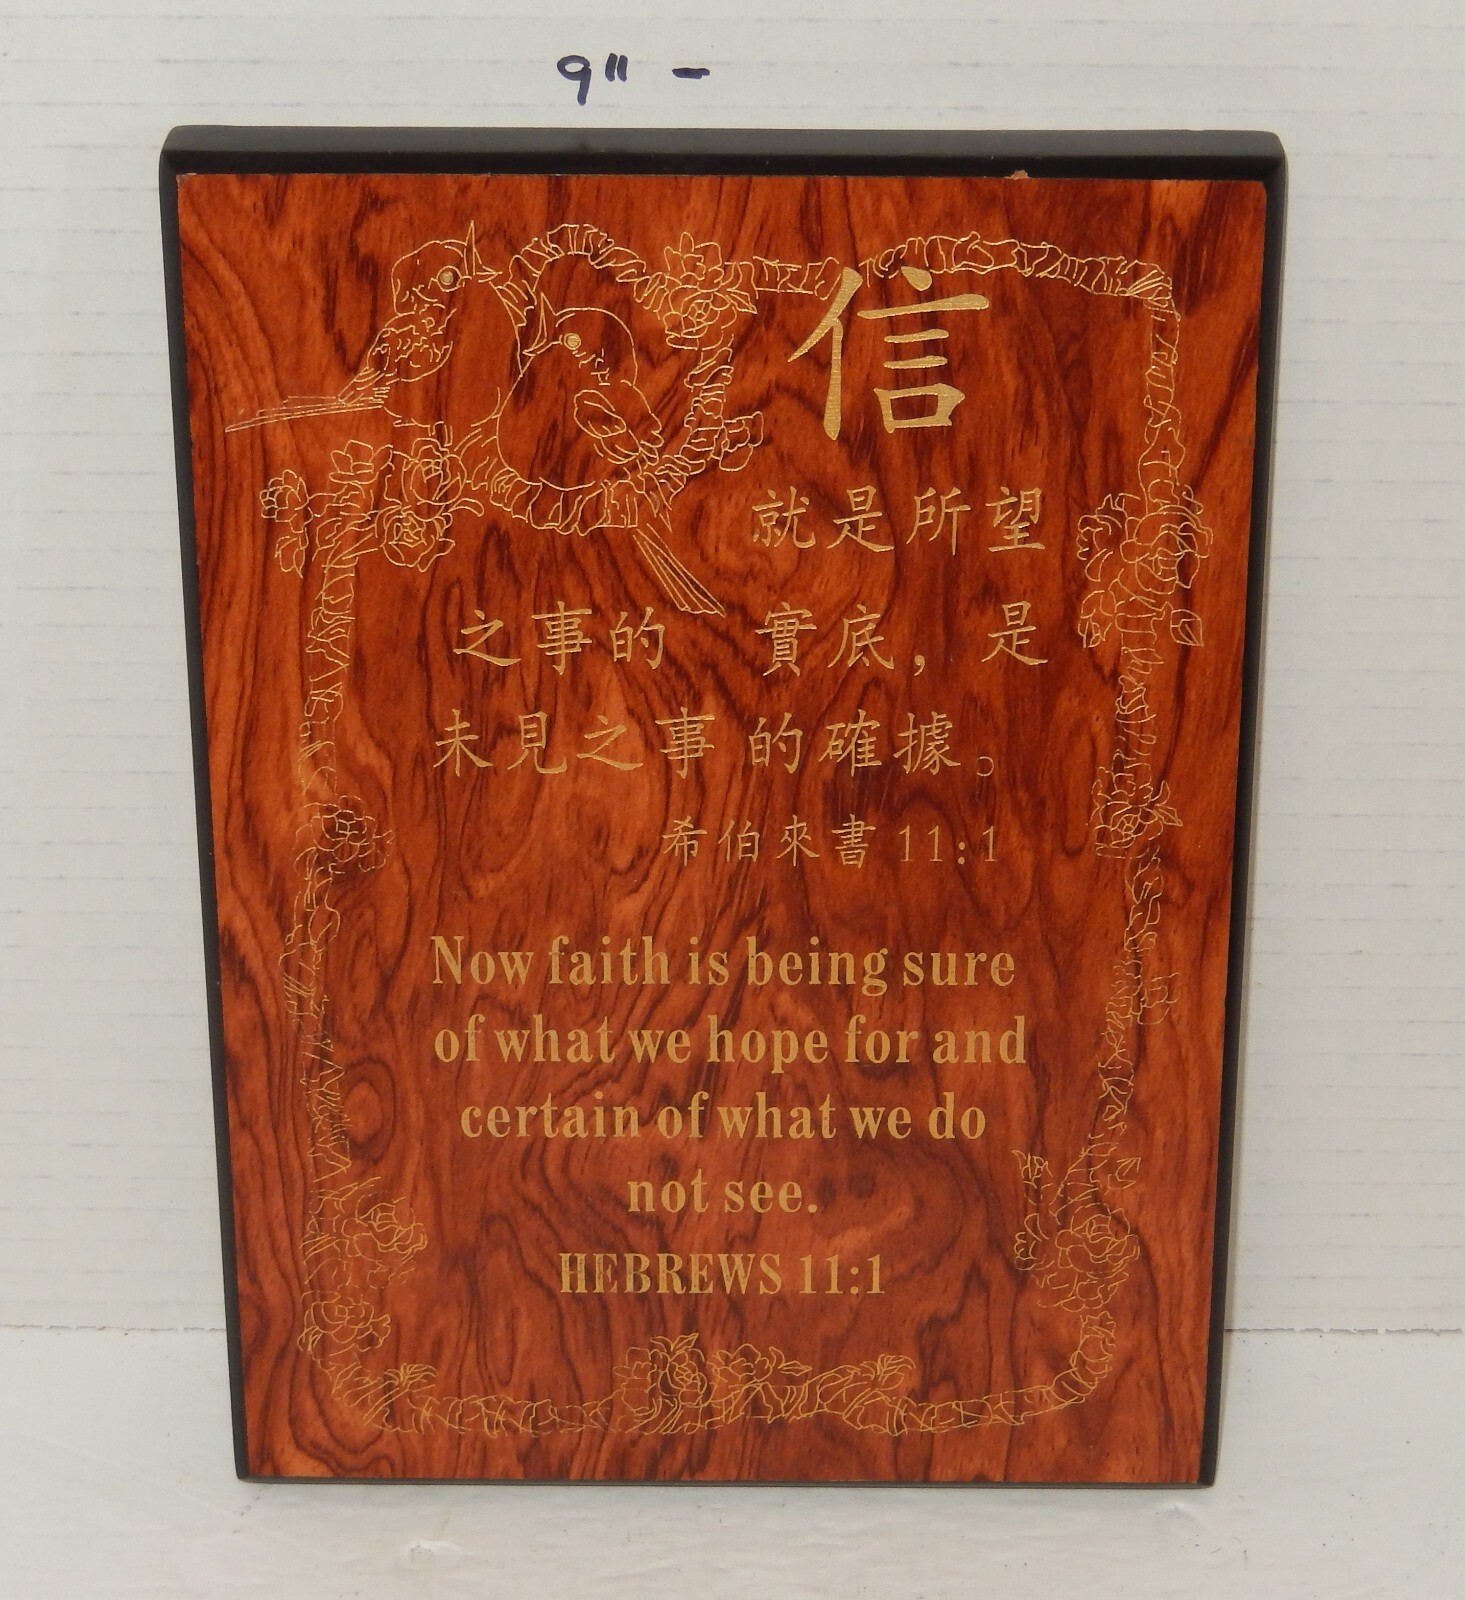 9" -
信
就是所望
之事的 實底，是
未見之事 的確據。
希伯來書 11:1
Now faith is being sure
of what we hope for and
certain of what we do
not see.
HEBREWS 11:1